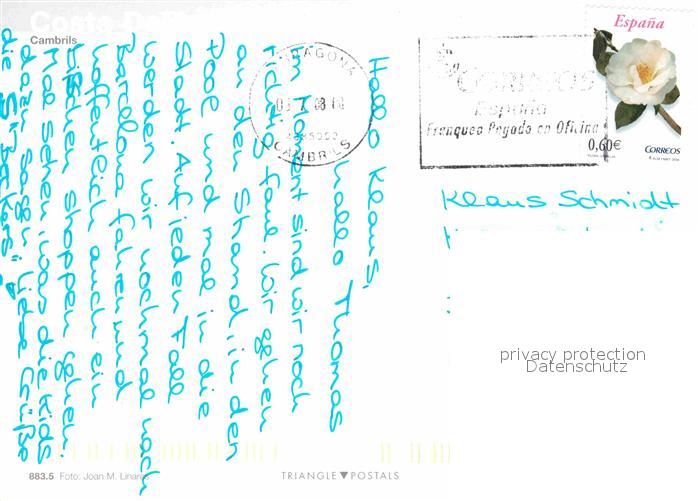 Costa Da
Cambrils
Hallo Klaus,
hallo Thomas
im Moment sind wir noch
richtig faul. Wir gehen
an den Strand, in den
Pool und mal in die
Stadt. Auf jeden Fall
werden wir nochmal nach
Barcelona fahren und
hoffentlich auch ein
bißchen shoppen gehen.
Mal sehen, was die Kids
dazu sagen. Liebe Grüße
die
TARRAGONA
CAMBRILS
CORREOS
España
Franqueo Pagado en Oficina
España
0,60€
CORREOS
Klaus Schmidt
privacy protection
Datenschutz
883.5 Foto: Joan M. Linares
TRIANGLE▼POSTALS